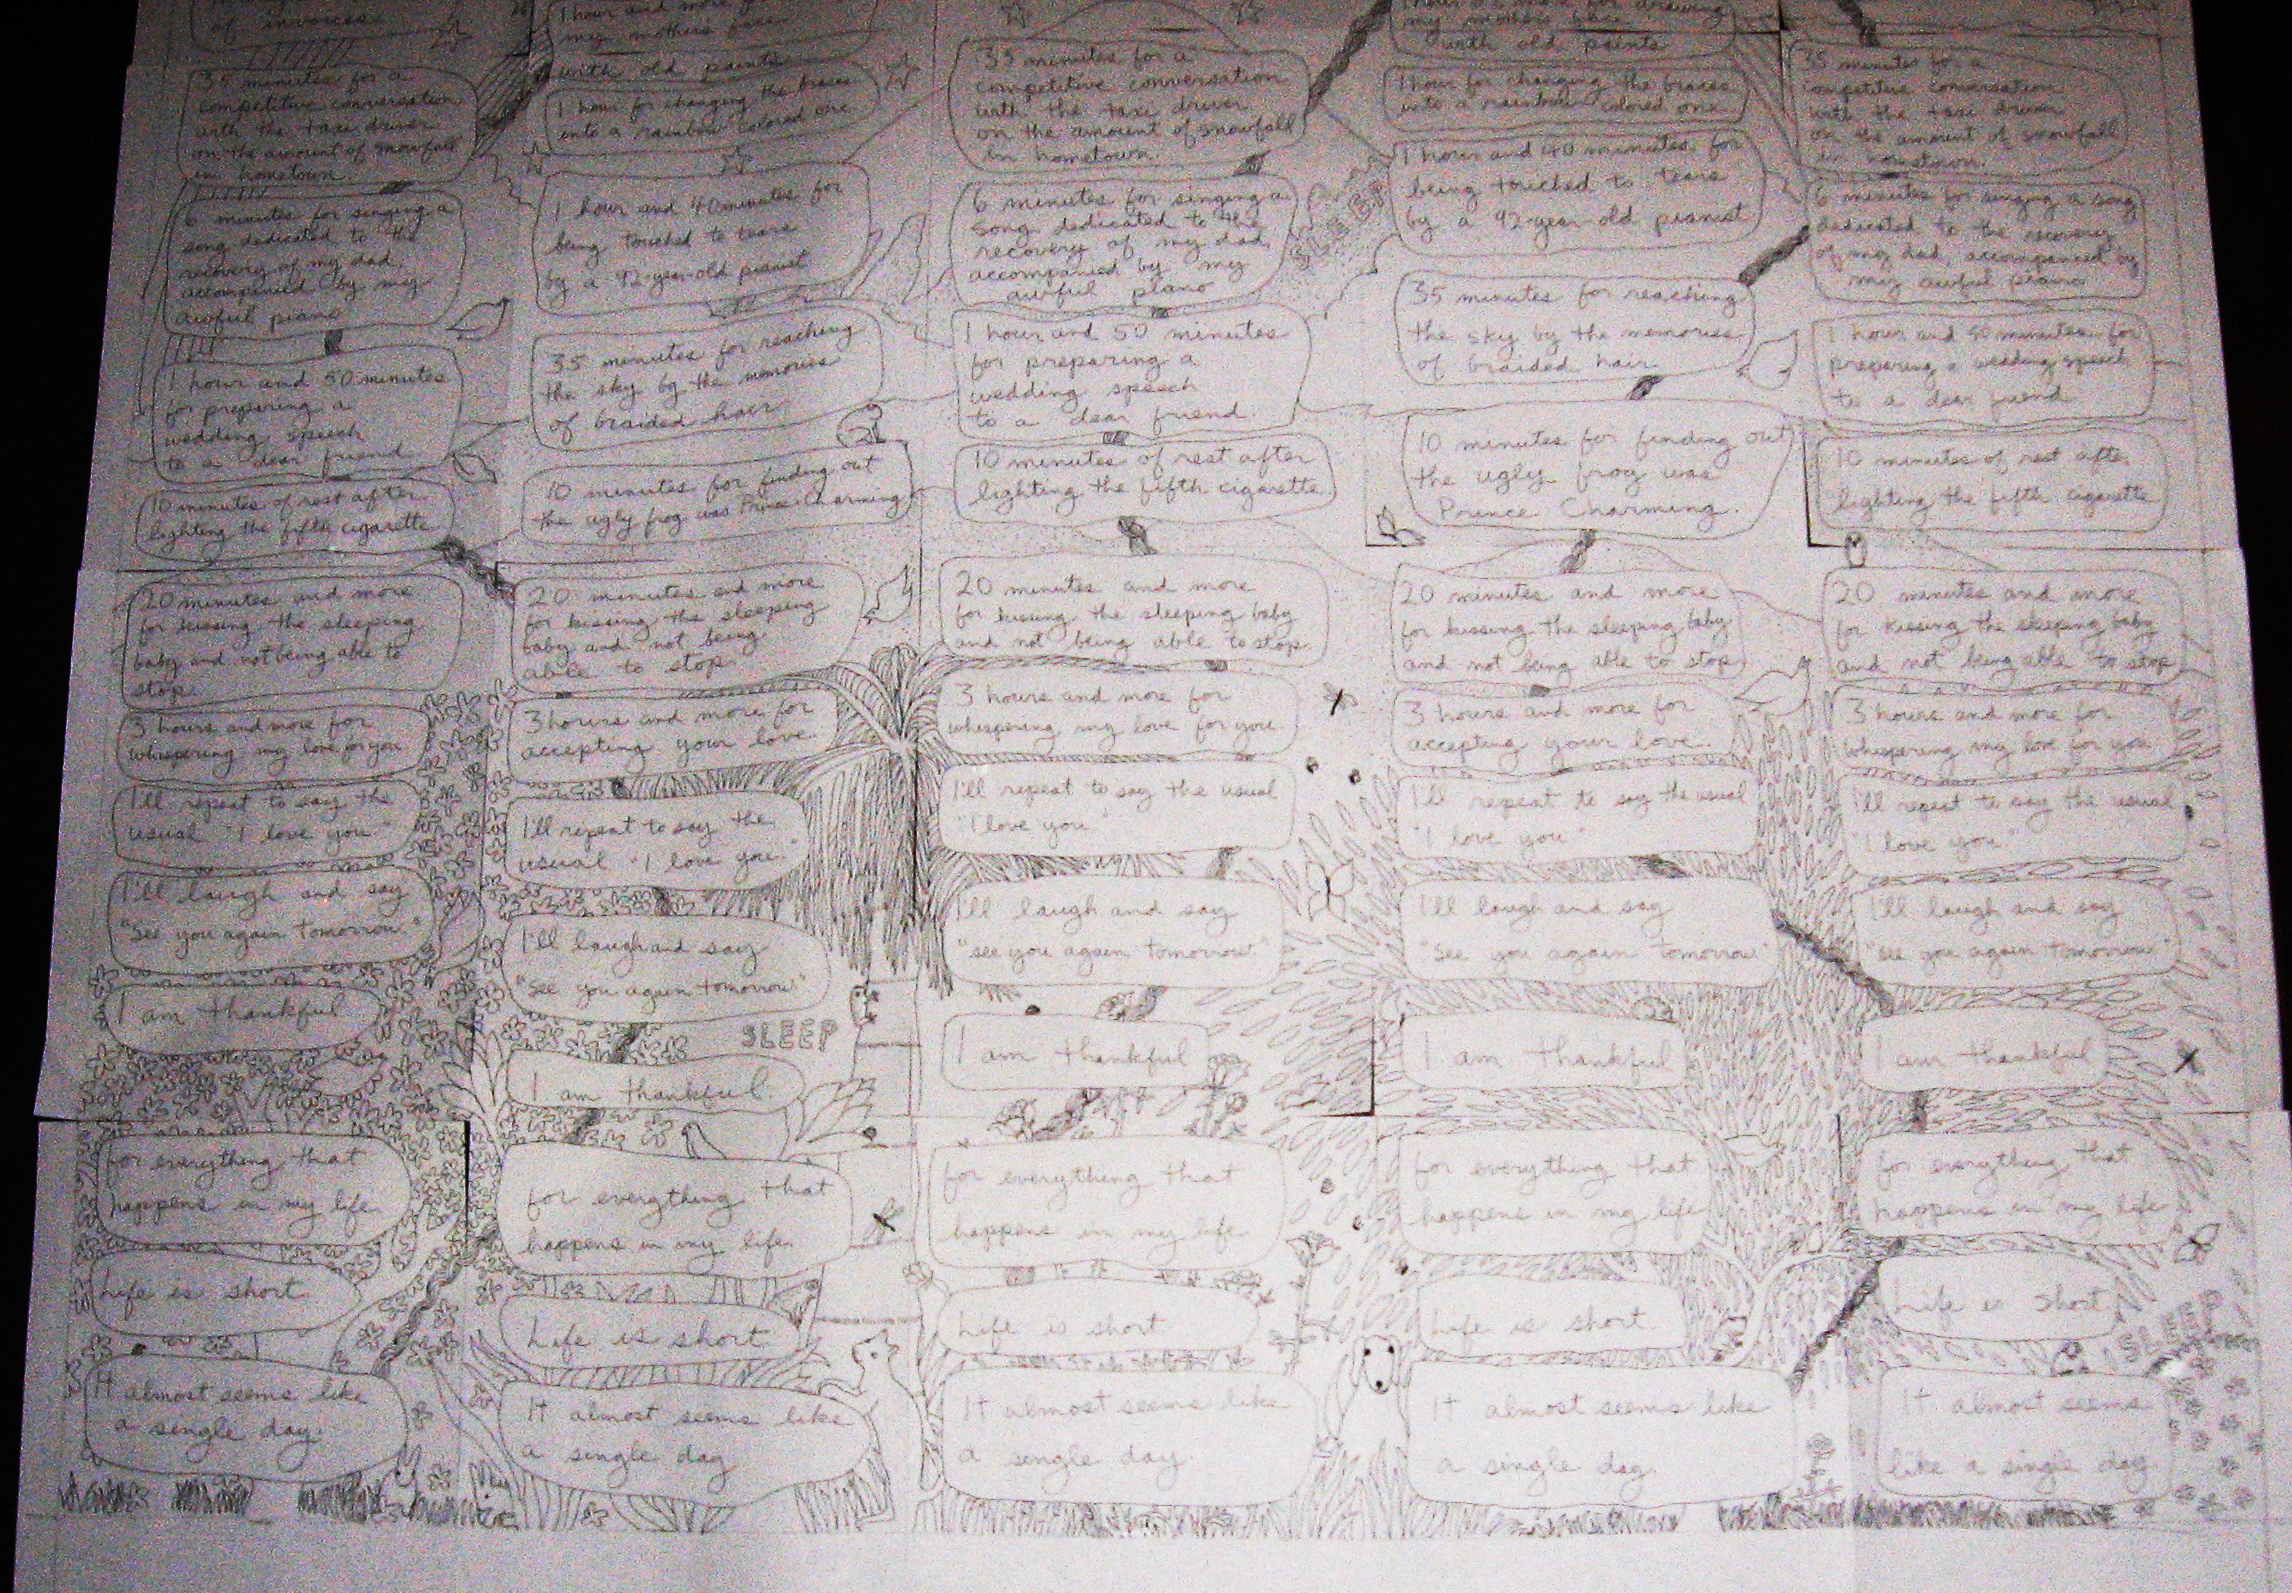 of invoices
35 minutes for a
competitive conversation
with the taxi driver
on the amount of snowfall
in hometown.
6 minutes for singing a
song dedicated to the
recovery of my dad,
accompanied by my
awful piano
1 hour and 50 minutes
for preparing a
wedding speech
to a dear friend
10 minutes of rest after
lighting the fifth cigarette
20 minutes and more
for kissing the sleeping
baby and not being able to
stop.
3 hours and more for
whispering my love for you
I'll repeat to say the
usual "I love you."
I'll laugh and say
"See you again tomorrow."
I am thankful
for everything that
happens in my life.
Life is short
It almost seems like
a single day.
1 hour and more
my mothers face
with old paints
1 hour for changing the braces
into a rainbow colored one
1 hour and 40 minutes for
being touched to tears
by a 92-year-old pianist
35 minutes for reaching
the sky by the memories
of braided hair
10 minutes for finding out
the ugly frog was Prince Charming
20 minutes and more
for kissing the sleeping
baby and not being
able to stop.
3 hours and more for
accepting your love.
I'll repeat to say the
usual "I love you."
I'll laugh and say
"See you again tomorrow."
SLEEP
I am thankful.
for everything that
happens in my life.
Life is short
It almost seems like
a single day
35 minutes for a
competitive conversation
with the taxi driver
on the amount of snowfall
in hometown.
6 minutes for singing a
song dedicated to the
recovery of my dad,
accompanied by my
awful piano
SLEEP
1 hour and 50 minutes
for preparing a
wedding speech
to a dear friend.
10 minutes of rest after
lighting the fifth cigarette
20 minutes and more
for kissing the sleeping baby
and not being able to stop.
3 hours and more for
whispering my love for you.
I'll repeat to say the usual
"I love you."
I'll laugh and say
"see you again tomorrow."
I am thankful
for everything that
happens in my life
Life is short.
It almost seems like
a single day.
1 hour or more for drawing
my mothers face
with old paints
1 hour for changing the braces
into a rainbow colored one
1 hour and 40 minutes for
being touched to tears
by a 92-year-old pianist
35 minutes for reaching
the sky by the memories
of braided hair
10 minutes for finding out
the ugly frog was
Prince Charming.
20 minutes and more
for kissing the sleeping baby
and not being able to stop
3 hours and more for
accepting your love.
I'll repeat to say the usual
"I love you"
I'll laugh and say
"See you again tomorrow."
I am thankful
for everything that
happens in my life
Life is short.
It almost seems like
a single day.
35 minutes for a
competitive conversation
with the taxi driver
on the amount of snowfall
in hometown.
6 minutes for singing a song
dedicated to the recovery
of my dad, accompanied by
my awful piano.
1 hour and 50 minutes for
preparing a wedding speech
to a dear friend
10 minutes of rest after
lighting the fifth cigarette
20 minutes and more
for kissing the sleeping baby
and not being able to stop
3 hours and more for
whispering my love for you
I'll repeat to say the usual
"I love you."
I'll laugh and say
"see you again tomorrow."
I am thankful
for everything that
happens in my life
Life is short.
It almost seems
like a single day.